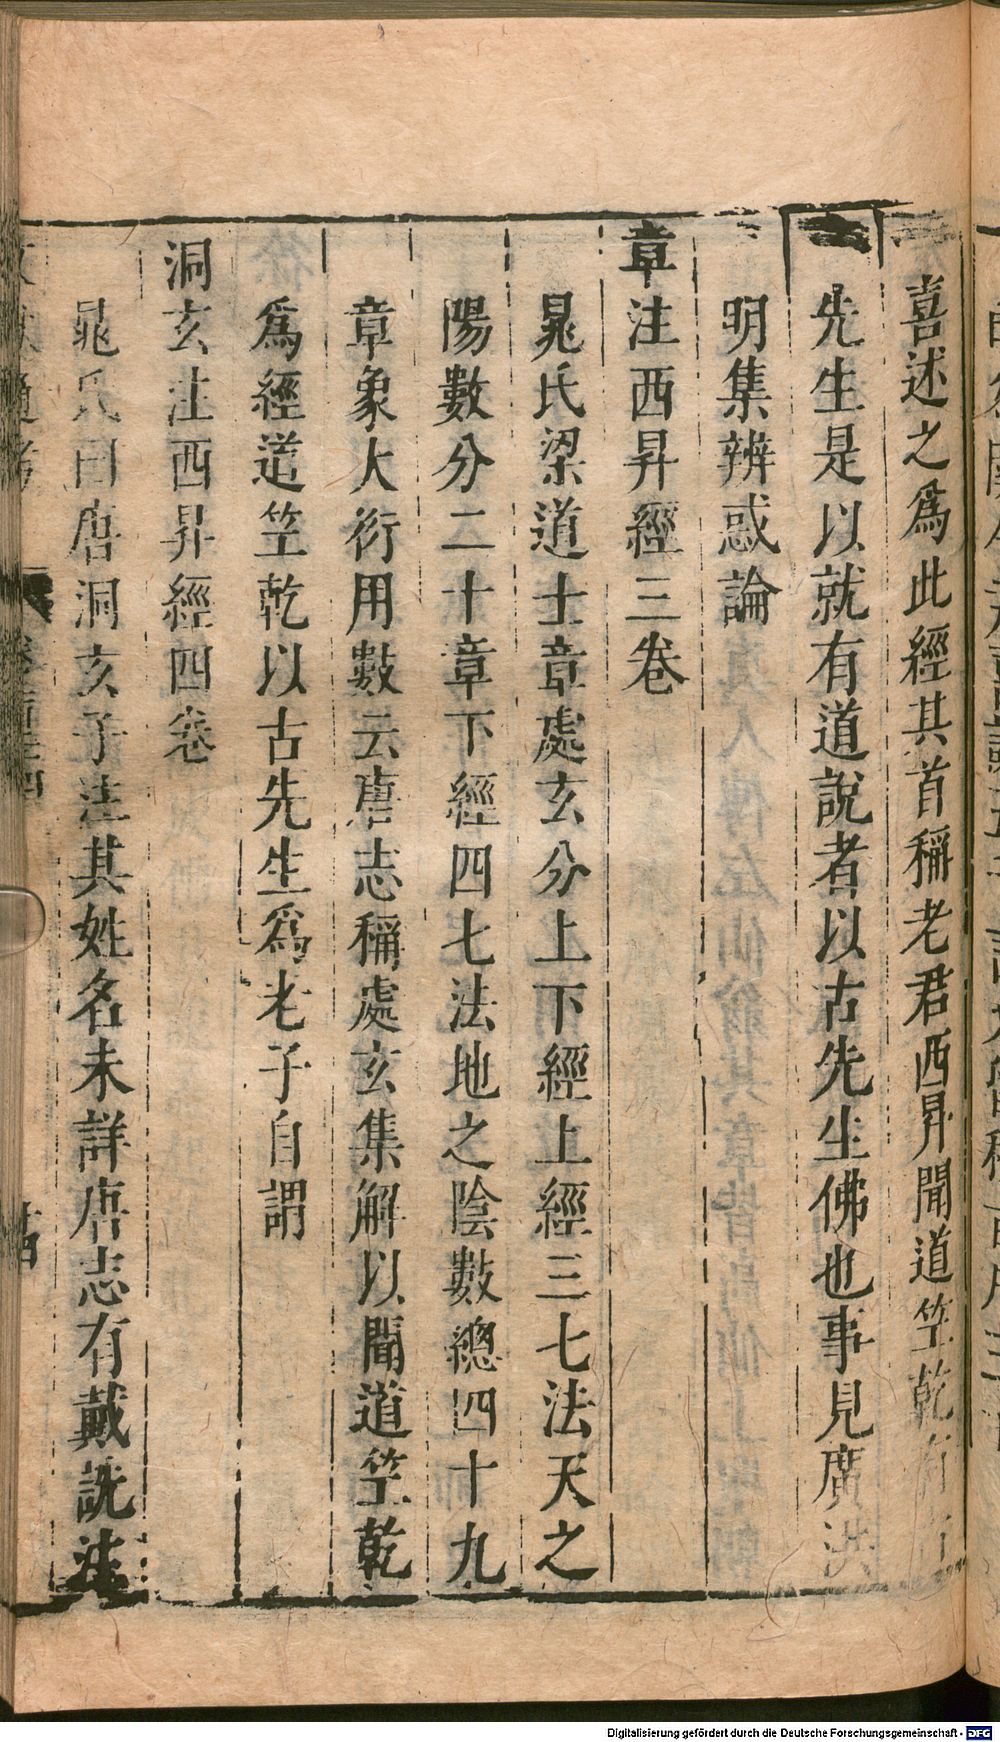 喜述之爲此經其首稱老君西昇聞道竺乾有
先生是以就有道說者以古先生佛也事見廣洪
明集辨惑論
章注西昇經三卷
晁氏梁道士章處玄分上下經上經三七法天之
陽數分二十章下經四七法地之陰數總四十九
章象大衍用數云唐志稱處玄集解以聞道竺乾
爲經道竺乾以古先生爲老子自謂
洞玄注西昇經四卷
晁氏曰唐洞玄子注其姓名未詳唐志有戴詵注
Digitalisierung gefördert durch die Deutsche Forschungsgemeinschaft - DFG